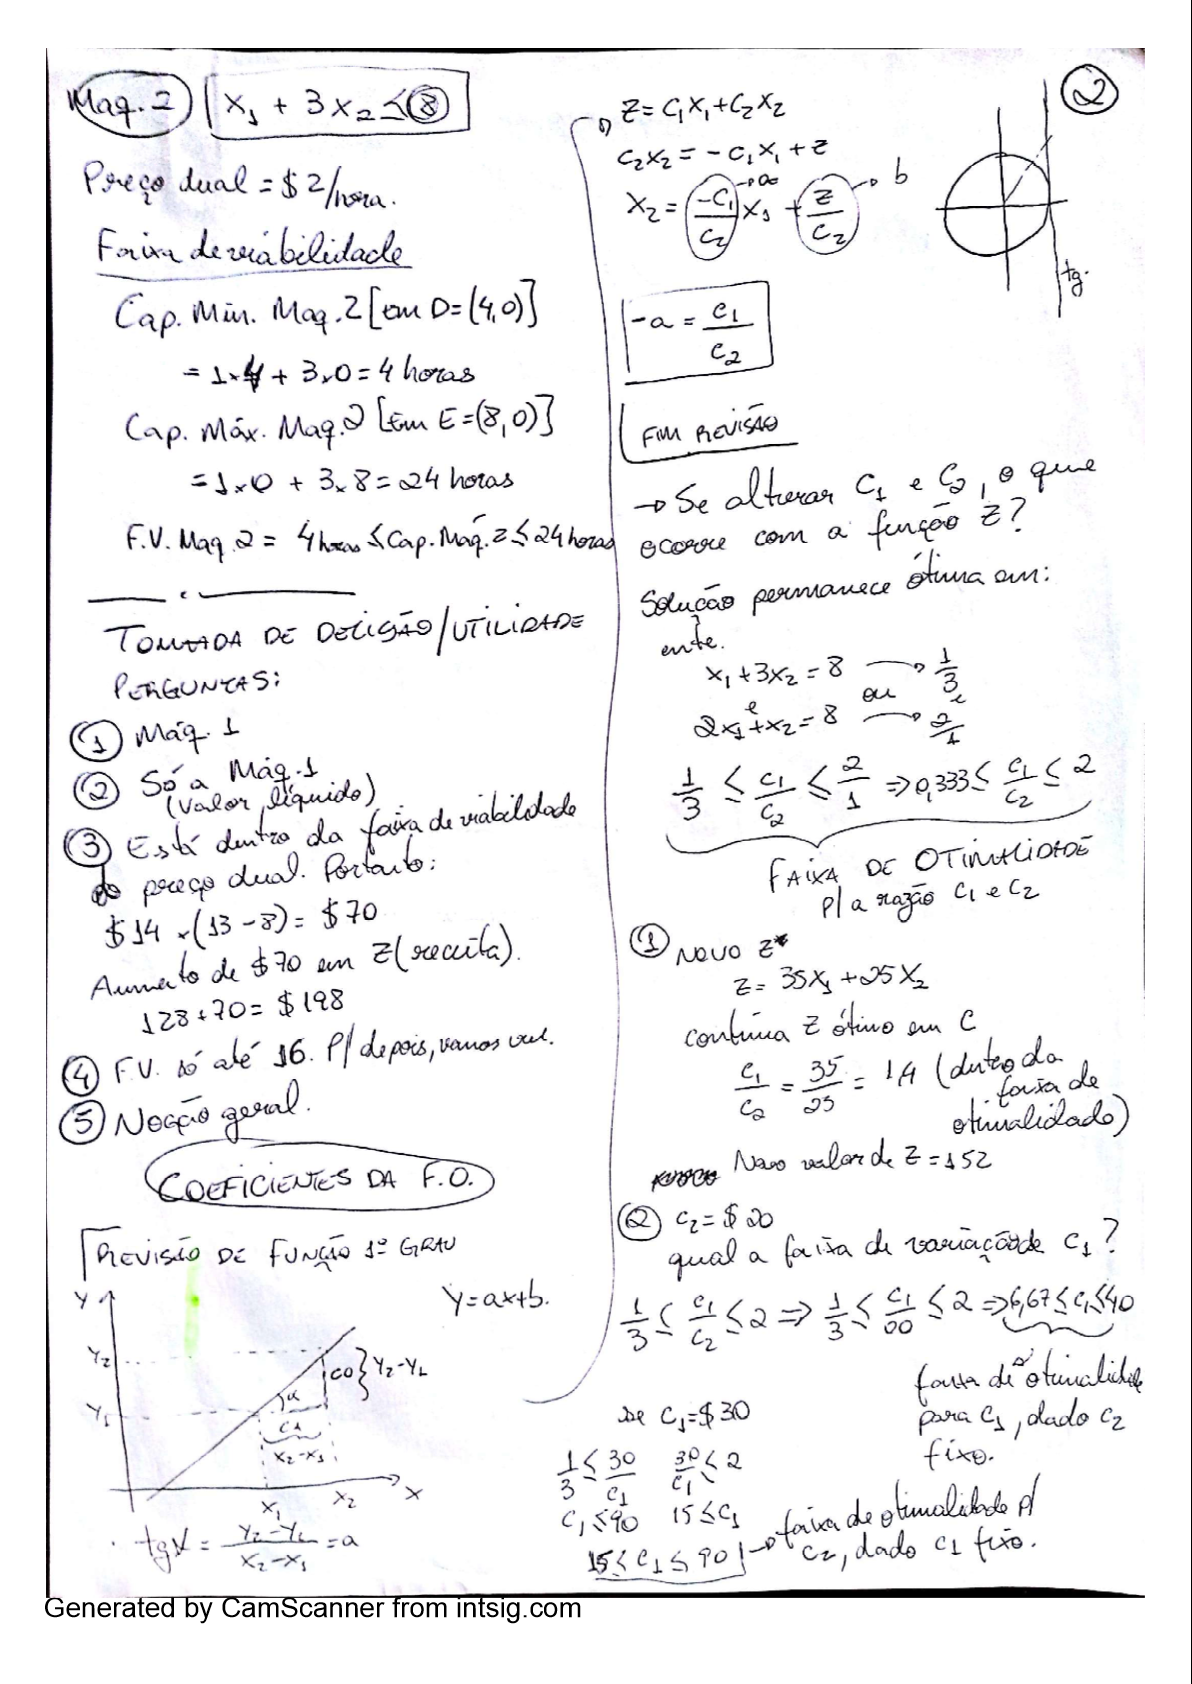 Maq. 2 x₁ + 3x₂ ≤ 8
Preço dual = $2/hora.
Faixa de viabilidade
Cap. Min. Maq. 2 [em D=(4,0)]
= 1×4 + 3×0 = 4 horas
Cap. Máx. Maq. 2 [Em E=(8,0)]
= 1×0 + 3×8 = 24 horas
F.V. Maq. 2 = 4 horas ≤ Cap. Maq. 2 ≤ 24 horas
TOMADA DE DECISÃO/UTILIDADE
PERGUNTAS:
① Máq. 1
② Só a Máq. 1
(valor líquido)
③ Está dentro da faixa de viabilidade
do preço dual. Portanto:
$14 × (13-8) = $70
Aumento de $70 em Z (receita).
128+70 = $198
④ F.V. só até 16. P/ depois, vamos ver.
⑤ Nocção geral.
COEFICIENTES DA F.O.
REVISÃO DE FUNÇÃO 1º GRAU
y = ax+b.
Y
Y₂
CO } Y₂-Y₁
α
Y₁
CA
X₂-X₁
X₁ X₂ X
tgα = Y₂-Y₁/X₂-X₁ = a
②
Z = C₁X₁+C₂X₂
C₂X₂ = -C₁X₁ + Z
X₂ = -C₁/C₂ X₁ + Z/C₂ → b
tg.
-a = C₁/C₂
FIM REVISÃO
→ Se alterar C₁ e C₂, o que
ocorre com a função Z?
Solução permanece ótima em:
ente.
X₁+3X₂ = 8 → 1/3
e ou e
2X₁+X₂ = 8 → 2/1
1/3 ≤ C₁/C₂ ≤ 2/1 ⇒ 0,333 ≤ C₁/C₂ ≤ 2
FAIXA DE OTIMALIDADE
P/ a razão C₁ e C₂
① NOVO Z*
Z = 35X₁ + 25X₂
continua Z ótimo em C
C₁/C₂ = 35/25 = 1,4 (dentro da
faixa de
otimalidade)
Novo valor de Z = 152
② C₂ = $20
qual a faixa de variação de C₁?
1/3 ≤ C₁/C₂ ≤ 2 ⇒ 1/3 ≤ C₁/20 ≤ 2 ⇒ 6,67 ≤ C₁ ≤ 40
faixa de otimalidade
para C₁, dado C₂
fixo.
se C₁ = $30
1/3 ≤ 30/C₁ 30/C₁ ≤ 2
C₁ ≤ 90 15 ≤ C₁
15 ≤ C₁ ≤ 90 → faixa de otimalidade p/
C₂, dado C₁ fixo.
Generated by CamScanner from intsig.com